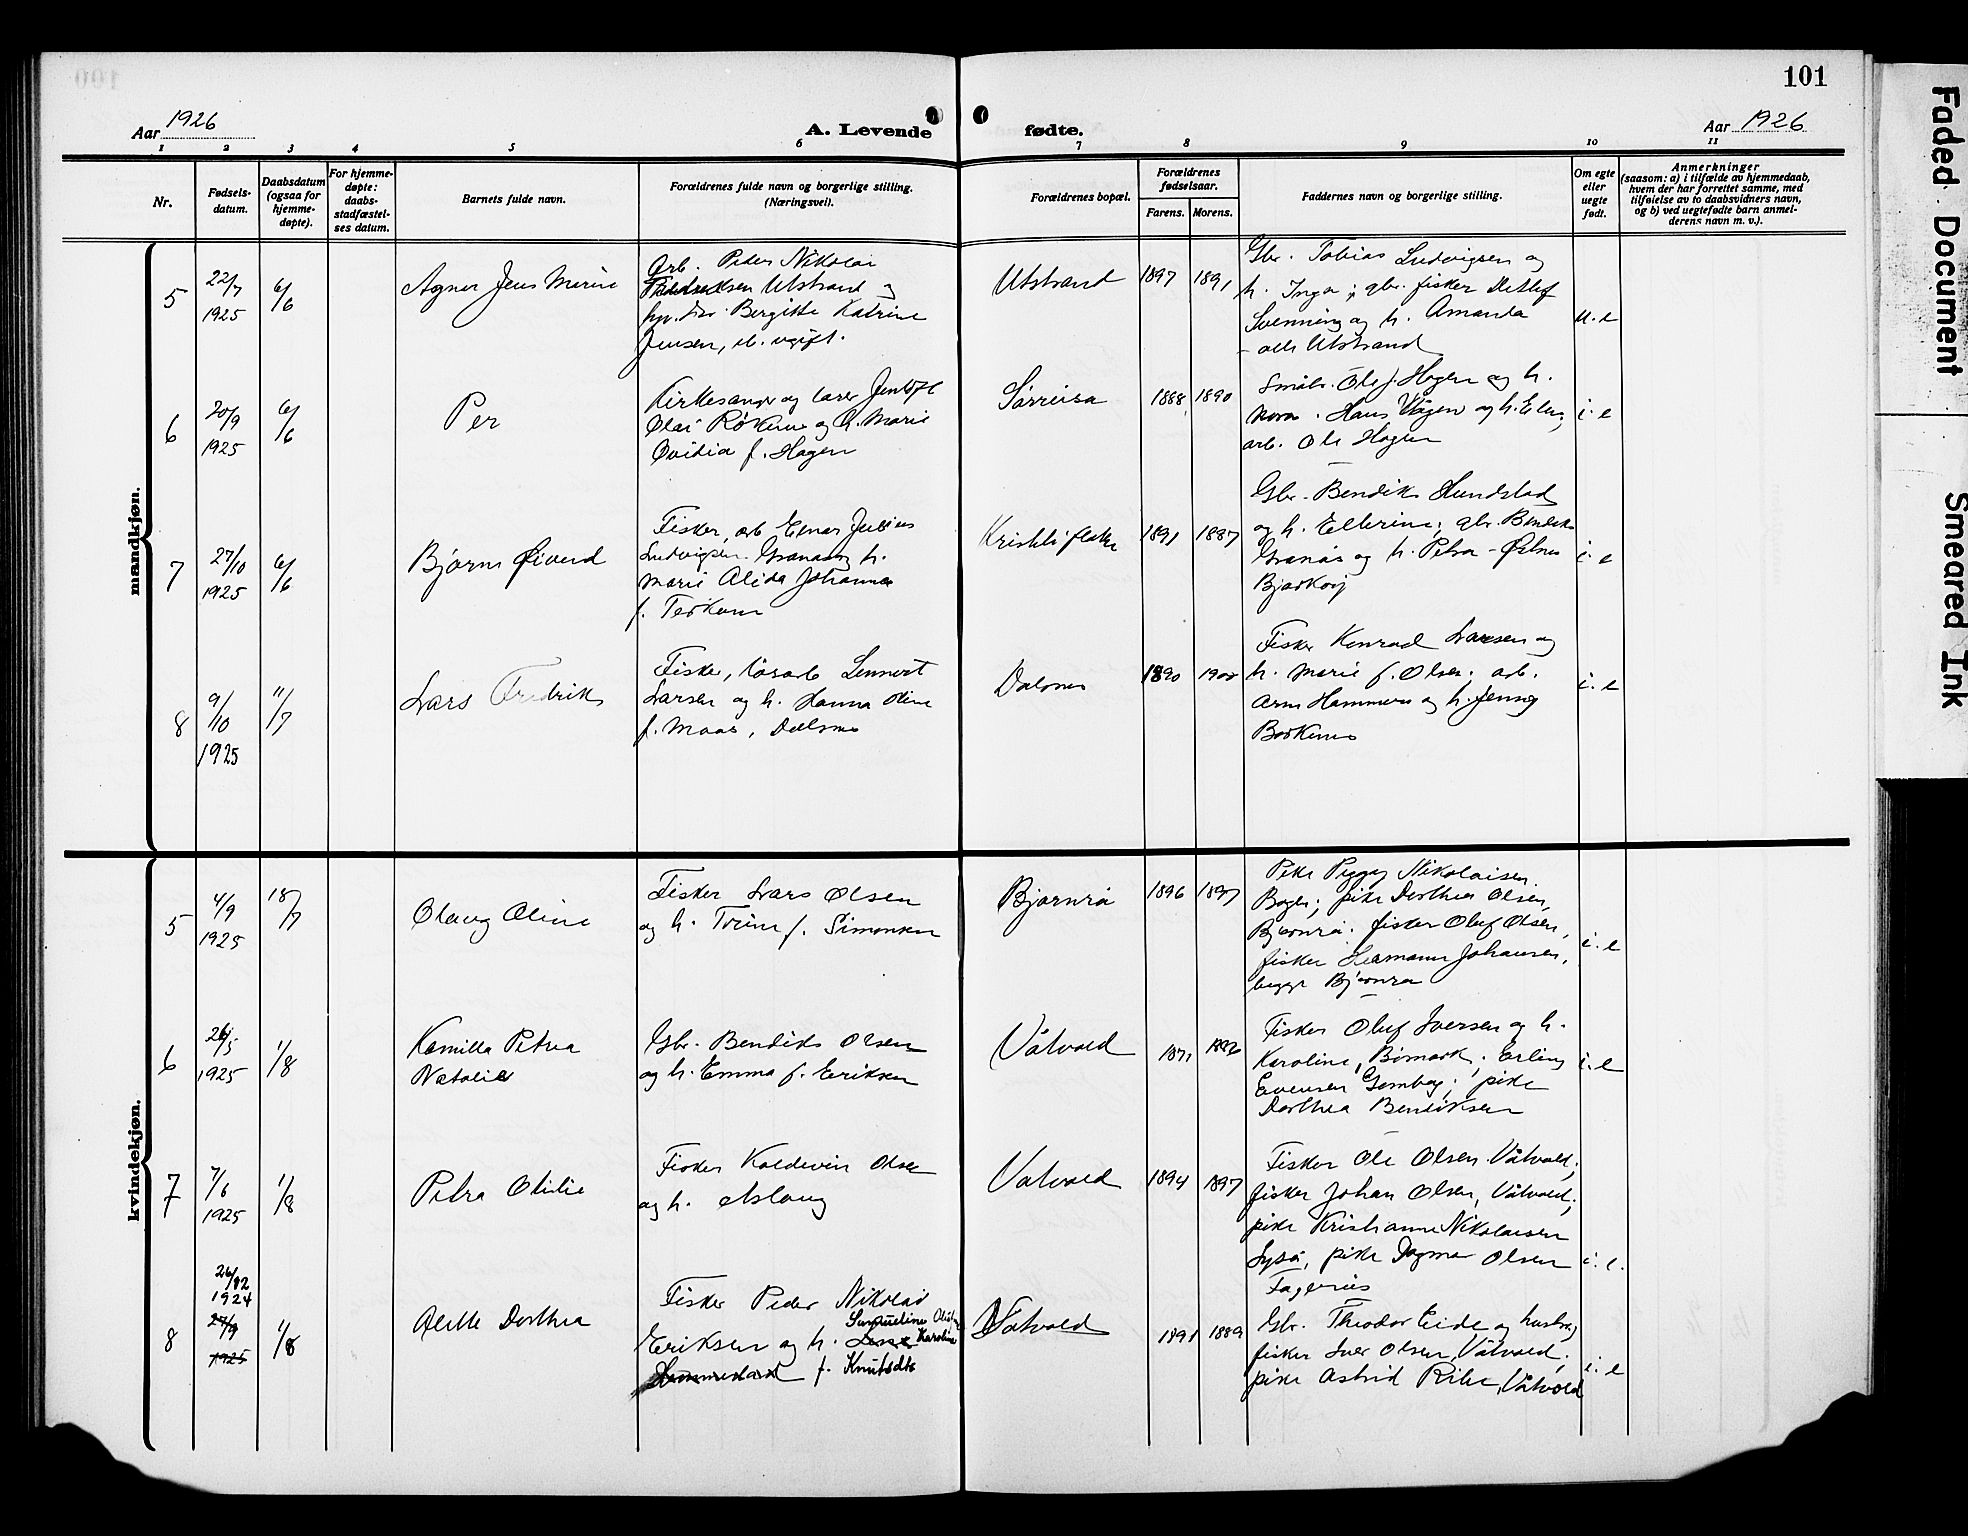 101
Aar 1926
A. Levende fødte.
Aar 1926
1 2 3 4 5 6 7 8 9 10 11
Nr.
Fødsels-
datum.
Daabsdatum
(ogsaa for
hjemme-
døpte).
For hjemme-
døpte:
daabs-
stadfæstel-
ses datum.
Barnets fulde navn.
Forældrenes fulde navn og borgerlige stilling.
(Næringsvei).
Forældrenes bopæl.
Forældrenes
fødselsaar.
Farens. Morens.
Faddernes navn og borgerlige stilling.
Om egte
eller
uegte
født.
Anmerkninger
(saasom: a) i tilfælde av hjemmedaab,
hvem der har forrettet samme, med
tilføielse av to daabsvidners navn,
og b) ved uegtefødte barn anmel-
derens navn m. v.).
mandkjøn.
5
22/7
1925
6/6
Agner Jens Marius
Arb. Peder Nikolai
Utstrand og
Bergitte Katrine
Jensen, ugift.
Utstrand
1897
1891
Gbr. Tobias Ludvigsen og
h. Inga; gbr. fisker Detlef
Svenning og h. Amanda
- alle Utstrand
u. e
6
20/9
1925
6/6
Per
Kirkesanger og lærer Jentoft
Olai Røkenes og h. Marie
Øvidia f. Hagen
Sørreisa
1888
1890
Småbr. Ole J. Hagen og h.
Nora. Hans Vågen og h. Elen;
arb. Ole Hagen
i. e
7
27/10
1925
6/6
Bjørn Øivind
Fisker, arb Einar Julius
Ludvigsen Granås og h.
Marie Alida Johanna
f.
1891
1887
Gbr. Bendik Hundstad
og h. Ellerine; gbr. Bendik
Granås og h. Petra - Østnes
Bjarkøy
i. e
8
9/10
1925
11/7
Lars Fredrik
Fisker, løsarb Lennart
Larsen og h. Hanna Oline
f. Maas, Dalsnes
Dalsnes
1890
1900
Fisker Konrad Larsen og
h. Marie f. Olsen; arb.
Arne Hammer og h. Jenny
Borkenes
i. e
kvindekjøn.
5
4/9
1925
18/7
Olaug Oline
Fisker Lars Olsen
og h. Trine f. Simonsen
Bjørnrå
1896
1897
Pike Peggy Nikolaisen
Bogen; pike Dorthea Olsen,
Bjørnrå. fisker Oluf Olsen,
fisker Hermann Johansen,
begge Bjørnrå
i. e
6
26/5
1925
1/8
Kamilla Petra
Natalie
Gbr. Bendik Olsen
og h. Emma f. Eriksen
Våtvold
1871
Fisker Oluf Iversen og h.
Karoline, Bømark; Erling
Evensen Gambøg; pike
Dorthea Bendiksen
i. e
7
7/6
1925
1/8
Petra Otilie
Fisker Koldevin Olsen
og h. Aslaug
Vatvold
1894
1897
Fisker Ole Olsen Våtvold;
fisker Johan Olsen, Våtvold;
pike Kristianne Nikolaisen
Lyså, pike Dagmar Olsen
Fagernes
i. e.
8
26/12
1924
27/9
1925
1/8
Alette Dorthea
Fisker Peder Nikolai
Samueline Olufine
Eriksen og h. Karoline
f. Knutsdtr
Våtvold
1891
1889
Gbr. Theodor Eide og hustru;
fisker Iver Olsen, Våtvold;
pike Astrid Ribe, Våtvold
i. e
Faded Document
Smeared Ink